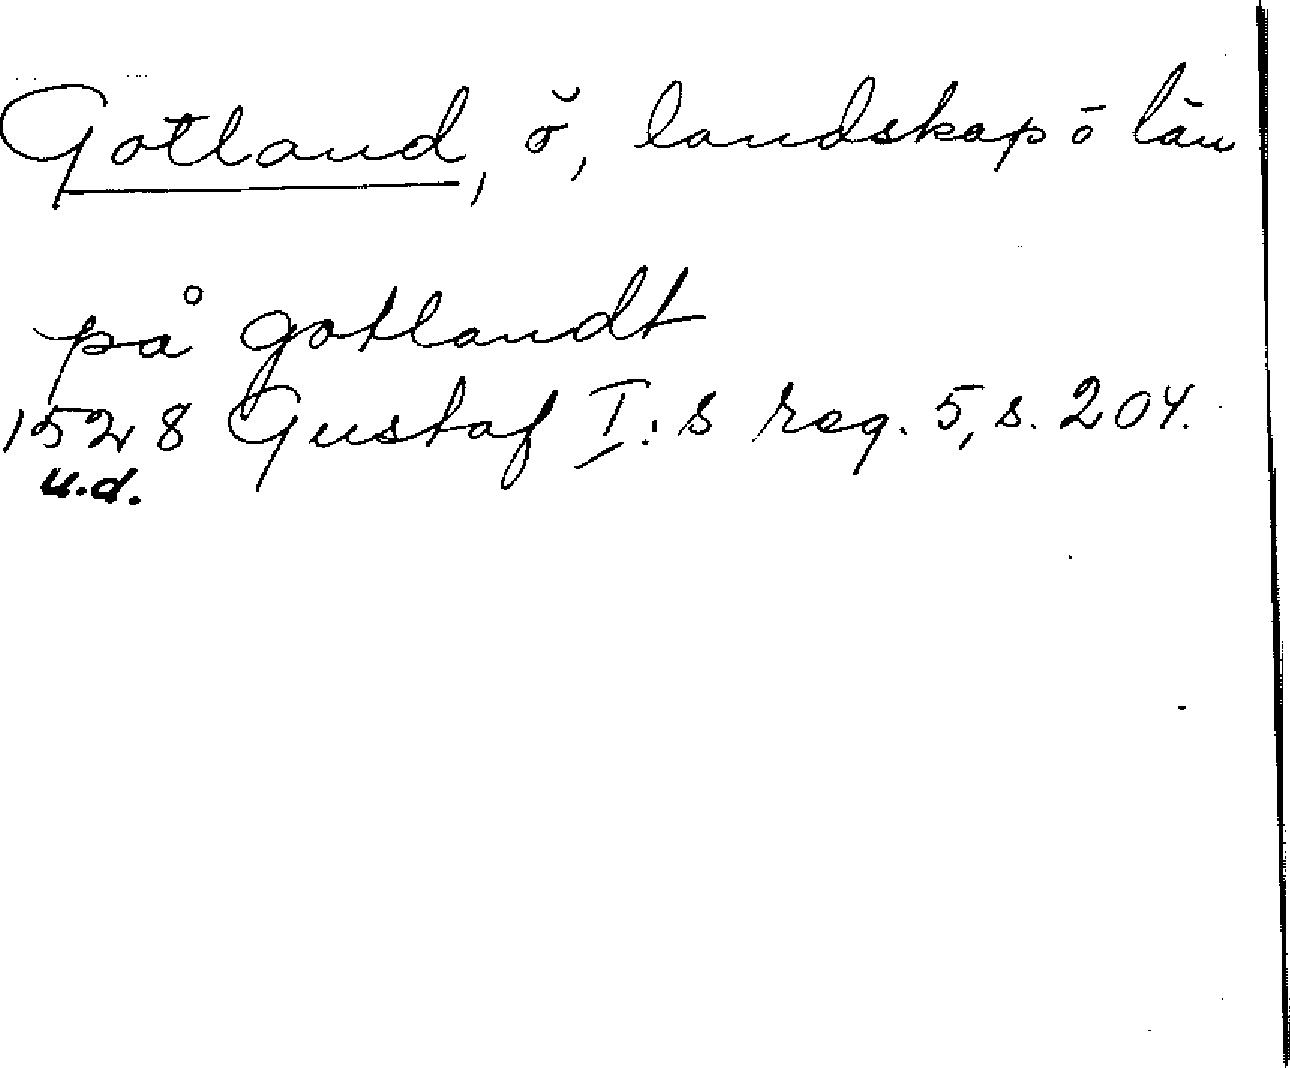 Gotland, ö, landskap o län
på gotlandt
1528 Gustaf I:s reg. 5, s. 204.
u.d.